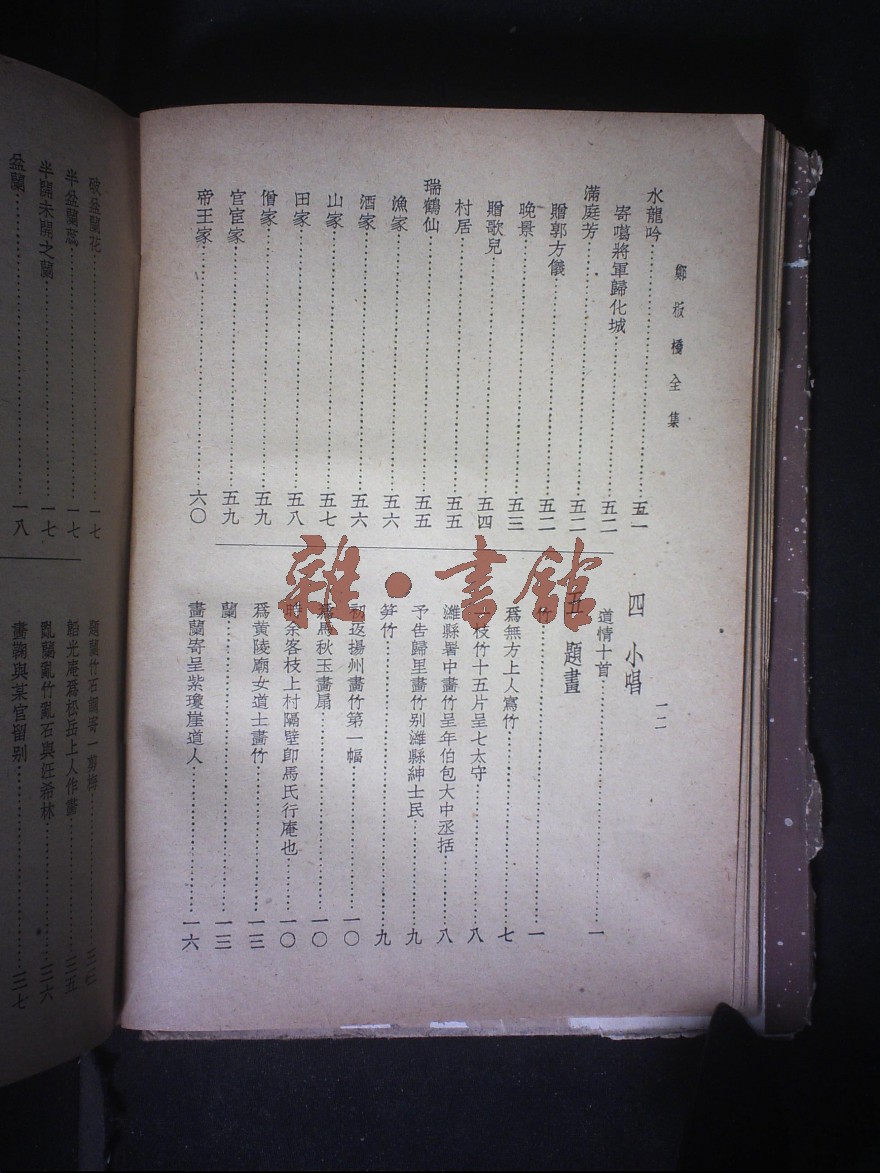 鄭板橋全集
一二
水龍吟……五一
寄噶將軍歸化城……五二
滿庭芳……五二
贈郭方儀……五二
晚景……五三
贈歌兒……五四
村居……五五
瑞鶴仙……五五
漁家……五六
酒家……五六
山家……五七
田家……五八
僧家……五九
官宦家……五九
帝王家……六〇
四 小唱
道情十首……一
五 題畫
竹……一
爲無方上人寫竹……七
一枝竹十五片呈七太守……八
濰縣署中畫竹呈年伯包大中丞括……八
予告歸里畫竹別濰縣紳士民……九
笋竹……九
初返揚州畫竹第一幅……一〇
爲馬秋玉畫扇……一〇
時余客枝上村隔壁卽馬氏行庵也……一〇
爲黃陵廟女道士畫竹……一三
蘭……一三
畫蘭寄呈紫瓊崖道人……一六
破盆蘭花……一七
半盆蘭蕊……一七
半開未開之蘭……一七
盆蘭……一八
亂蘭亂竹亂石與汪希林……三六
畫鞠與某官留別……三七
雜·書館